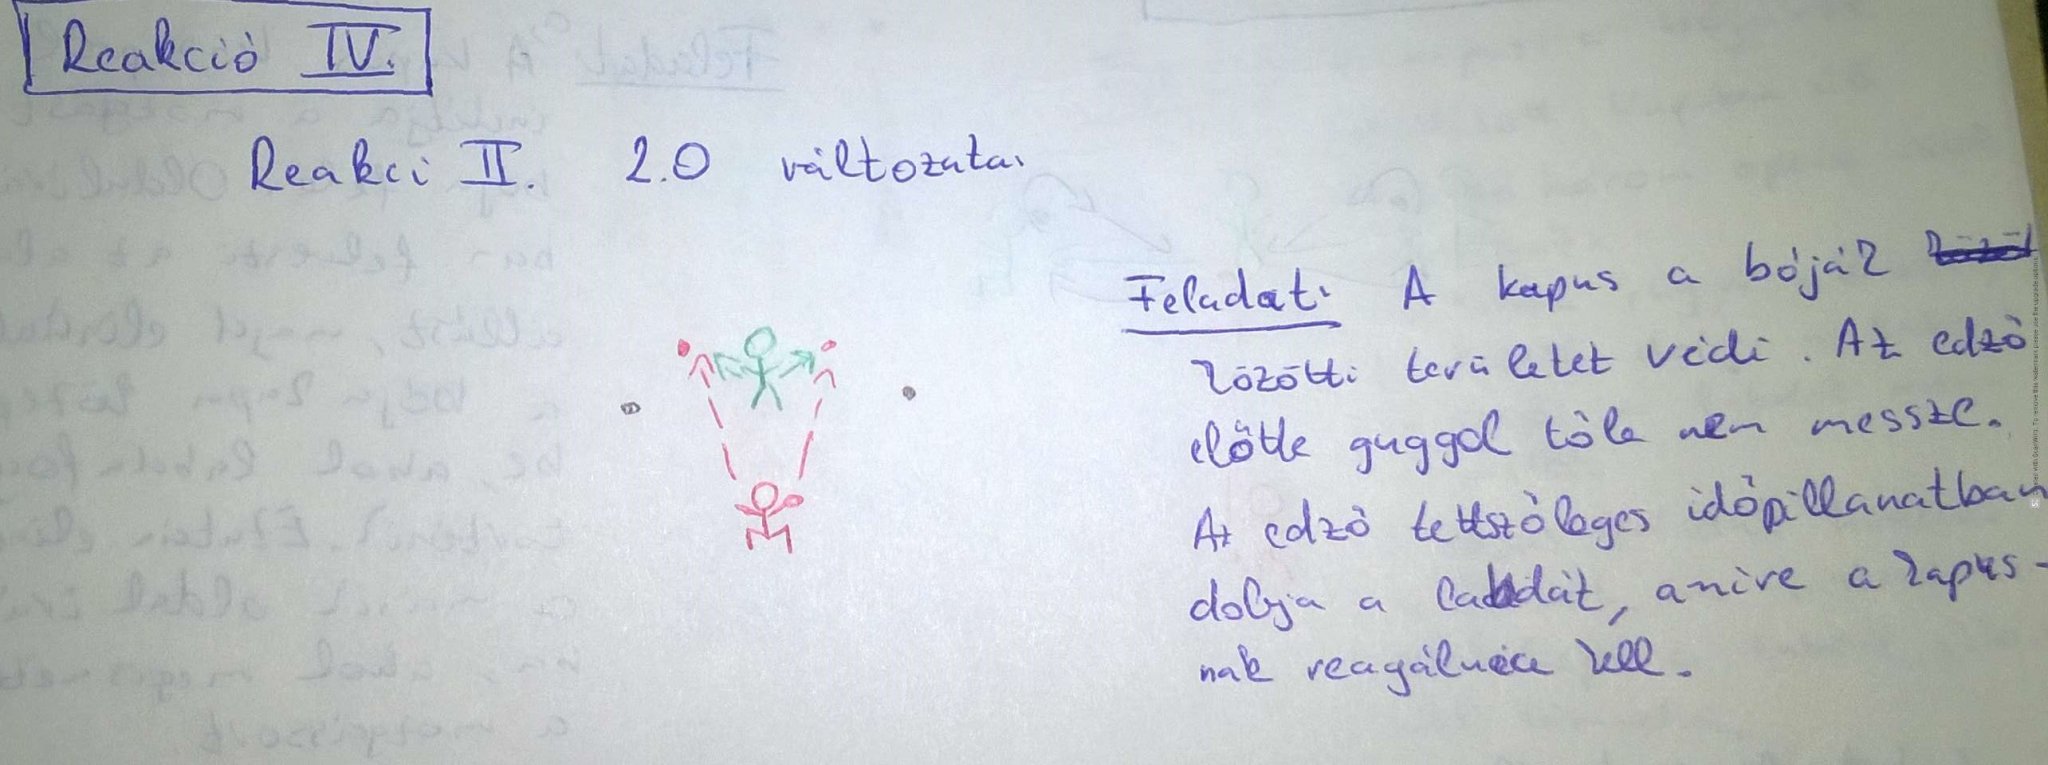 Reakció IV.
Reakci II. 2.0 változata.
Feladat: A kapus a bóják
közötti területet védi. Az edző
előtte guggol tőle nem messze.
Az edző tettszőleges időpillanatban
dobja a labdát, amire a kapus-
nak reagálnia kell.